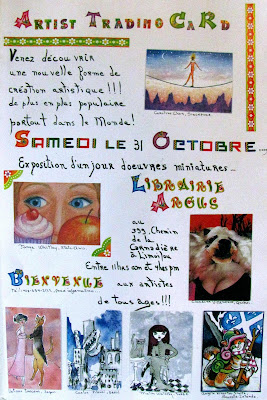 Artist Trading Card
Venez découvrir
une nouvelle forme de
création artistique!!!
de plus en plus populaire
partout dans le Monde!
Samedi le 31 Octobre
Exposition d'un jour d'oeuvres miniatures...
Librairie
Argus
au
Chemin
de la
Canardière
à Limoilou
Entre 11h00 am et 4h00 pm
Bienvenue
aux artistes
de tous âges!!!